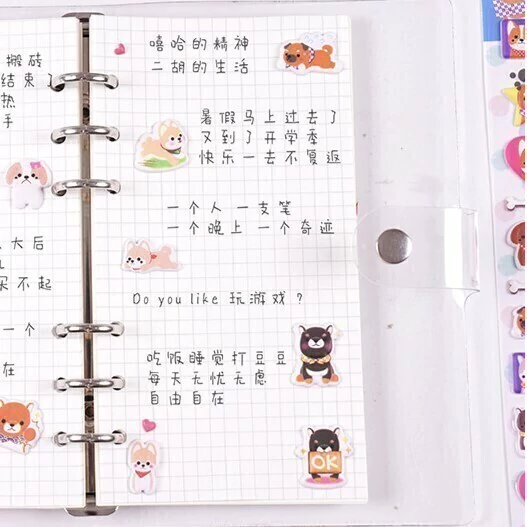 搬砖
结束了
热
手
大后
买不起
一个
在
嘻哈的精神
二胡的生活
暑假马上过去了
又到了开学季
快乐一去不复返
一个人一支笔
一个晚上 一个奇迹
Do you like 玩游戏?
吃饭睡觉打豆豆
每天无忧无虑
自由自在
OK